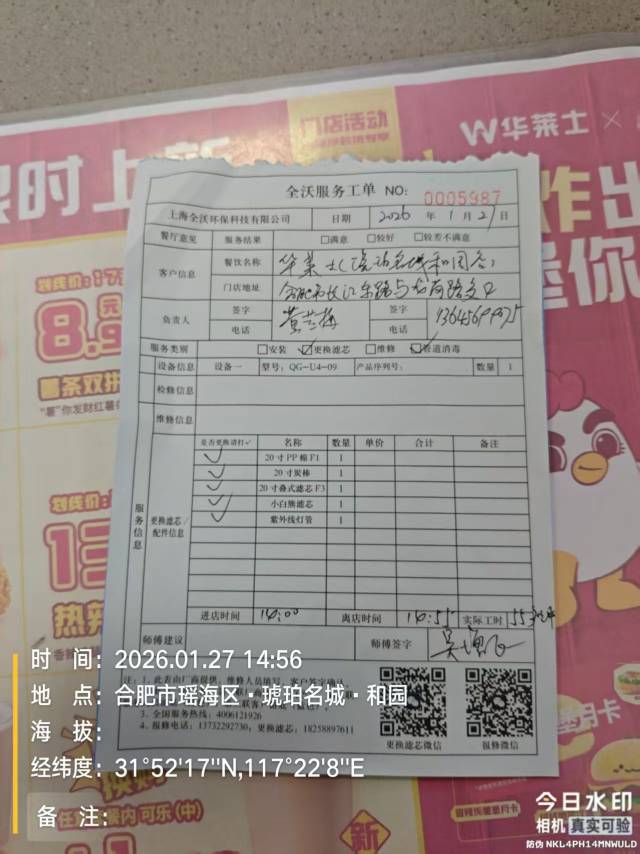 门店活动
W华莱士 ×
限时上新
炸出
堡你
划线价:17
8.9
元
薯条双拼
"薯"你发财红薯
划线价:
13
热辣
全沃服务工单 NO: 0005987
上海全沃环保科技有限公司 日期 2026 年 1 月 27 日
餐厅意见 服务结果 □满意 □较好 □较差不满意
客户信息 餐饮名称 华莱士(琥珀名城和园店)
门店地址 合肥市长江东路与龙岗路交口
负责人 签字 黄兰梅 签字
电话 电话
服务类别 □安装 ☑更换滤芯 □维修 ☑管道消毒
设备信息 设备一 型号: QG-U4-09 产品序列号: 数量 1
检修信息
维修信息
服务信息
更换滤芯/配件信息
是否更换请打✓ 名称 数量 单价 合计 备注
✓ 20寸PP棉F1 1
✓ 20寸炭棒 1
✓ 20寸叠式滤芯F3 1
✓ 小白熊滤芯 1
✓ 紫外线灯管 1
进店时间 14:00 离店时间 14:55 实际工时 55分钟
师傅建议 师傅签字
注: 1. 此表由厂商提供, 维修人员填写, 客户签字确认
3. 全国服务热线: 4006121926
4. 报修电话: 13732292730, 更换滤芯: 18258897611
更换滤芯微信 报修微信
时 间: 2026.01.27 14:56
地 点: 合肥市瑶海区·琥珀名城·和园
海 拔:
经纬度: 31°52'17"N,117°22'8"E
备 注:
可乐(中)
新
堡月卡
今日水印
相机 真实可验
防伪 NKL4PH14MNWULD